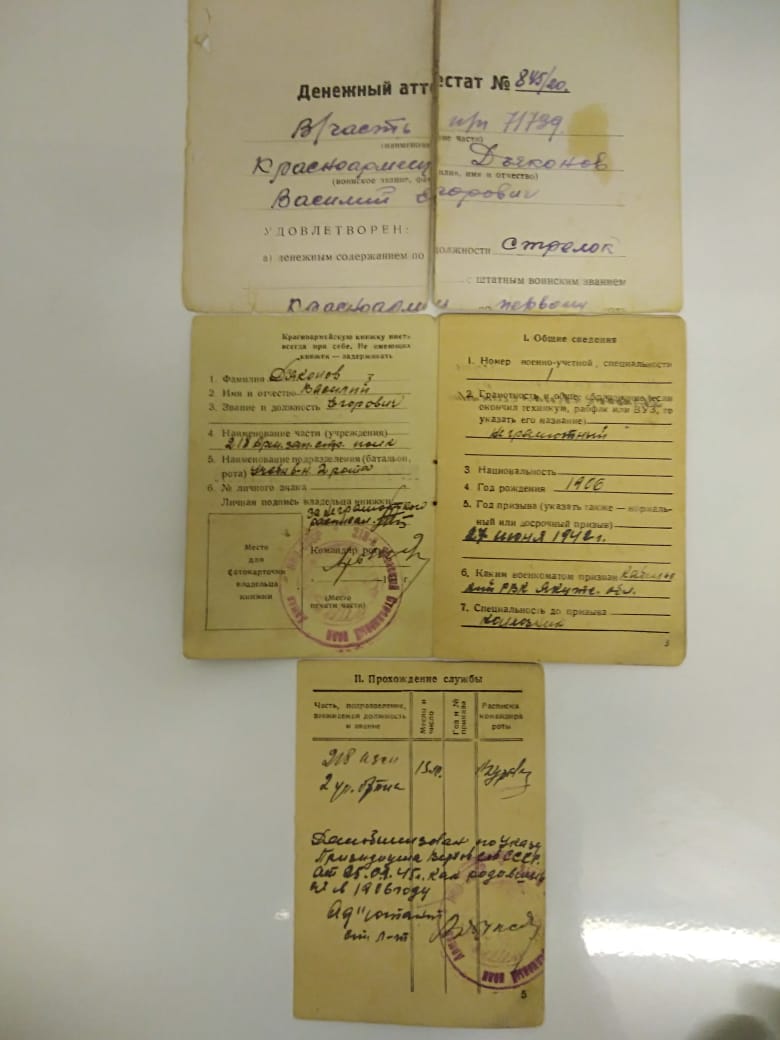 Денежный аттестат № 845/20.
В/часть п/п 71739.
Красноармеец Дьяконов
(воинское звание, фамилия, имя и отчество)
Василий Егорович
УДОВЛЕТВОРЕН:
а) денежным содержанием по должности Стрелок
с штатным воинским званием
Красноармей по первому
Красноармейскую книжку иметь
всегда при себе. Не имеющих
книжек — задерживать
1. Фамилия Дьяконов
2. Имя и отчество Василий
3. Звание и должность Егорович
4. Наименование части (учреждения)
218 арм. зап. стр. полк
5. Наименование подразделения (батальон,
рота) рота
6. № личного знака
Личная подпись владельца книжки
за неграмотного
расписал.
Место
для
фотокарточки
владельца
книжки
Командир роты
(Место
печати части)
I. Общие сведения
1. Номер военно-учетной специальности
1
2. Грамотность и общее образование (если
окончил техникум, рабфак или ВУЗ, то
указать его название)
неграмотный
3. Национальность
4. Год рождения 1906
5. Год призыва (указать также — нормаль-
ный или досрочный призыв)
27 июня 1942 г.
6. Каким военкоматом призван
РВК Якутс. обл.
7. Специальность до призыва
колхозник
3
II. Прохождение службы
Часть, подразделение,
занимаемая должность
и звание
Месяц и
число
Год и №
приказа
Расписка
командира
роты
218 азсп
2 уч. б-на
Демобилизован по Указу
Президиума Верхов СССР.
от 25.09.45 г. как родовший
ся в 1906 году
Ад"ютант
5